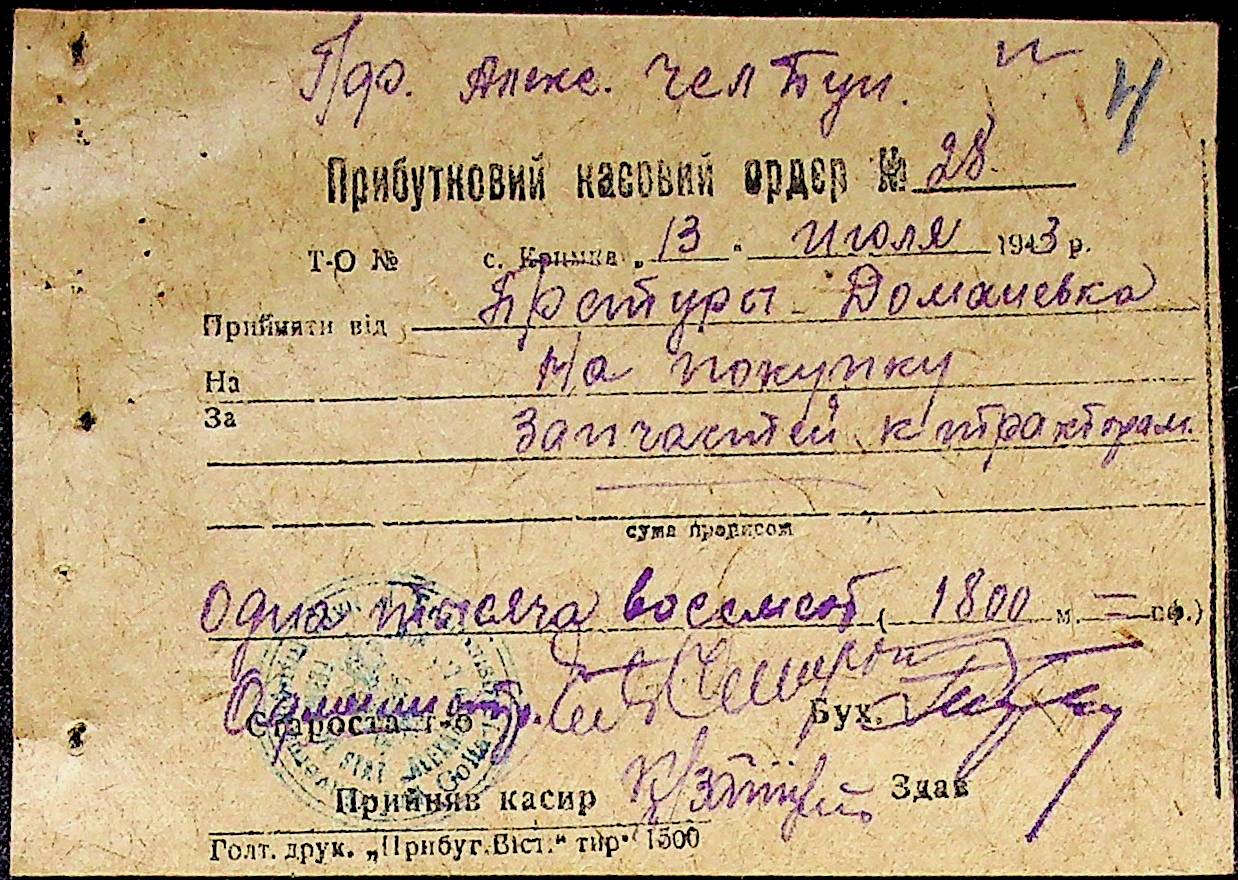 Алекс.
4
Прибутковий касовий ордер № 28
Т-О № с. Кримка „ 13 " июля 1943 р.
Прийняти від Претуры Доманевка
На На покупку
За Запчастей к тракторам.
сума прописом
одна тысяча восемсот ( 1800 м. = пф.)
Староста т-о Бух.
Прийняв касир Здав
Голт. друк. „Прибуг.Віст.“ тир. 1500